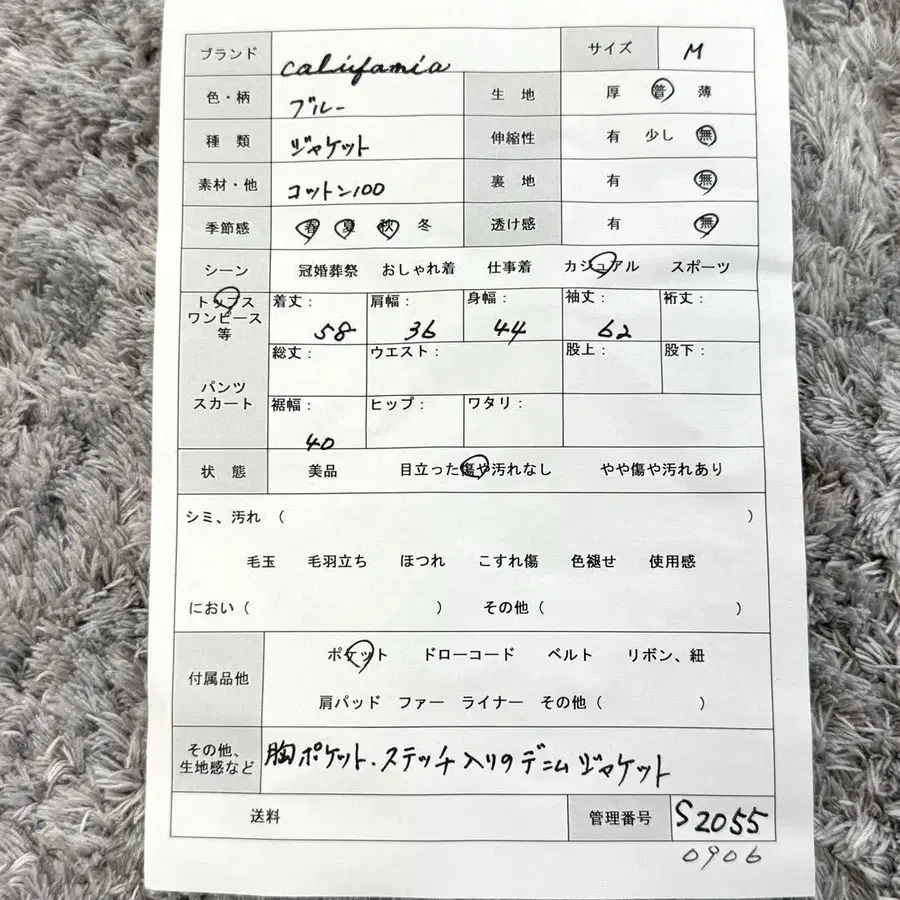 ブランド califamia サイズ M
色・柄 ブルー 生 地 厚 普 薄
種 類 ジャケット 伸縮性 有 少し 無
素材・他 コットン100 裏 地 有 無
季節感 春 夏 秋 冬 透け感 有 無
シーン 冠婚葬祭 おしゃれ着 仕事着 カジュアル スポーツ
トップス
ワンピース
等
着丈: 肩幅: 身幅: 袖丈: 裄丈:
58 36 44 62
パンツ
スカート
総丈: ウエスト: 股上: 股下:
裾幅: ヒップ: ワタリ:
40
状 態 美品 目立った傷や汚れなし やや傷や汚れあり
シミ、汚れ ( )
毛玉 毛羽立ち ほつれ こすれ傷 色褪せ 使用感
におい ( ) その他 ( )
付属品他 ポケット ドローコード ベルト リボン、紐
肩パッド ファー ライナー その他 ( )
その他、
生地感など
胸ポケット.ステッチ入りのデニムジャケット
送料 管理番号 S2055
0906